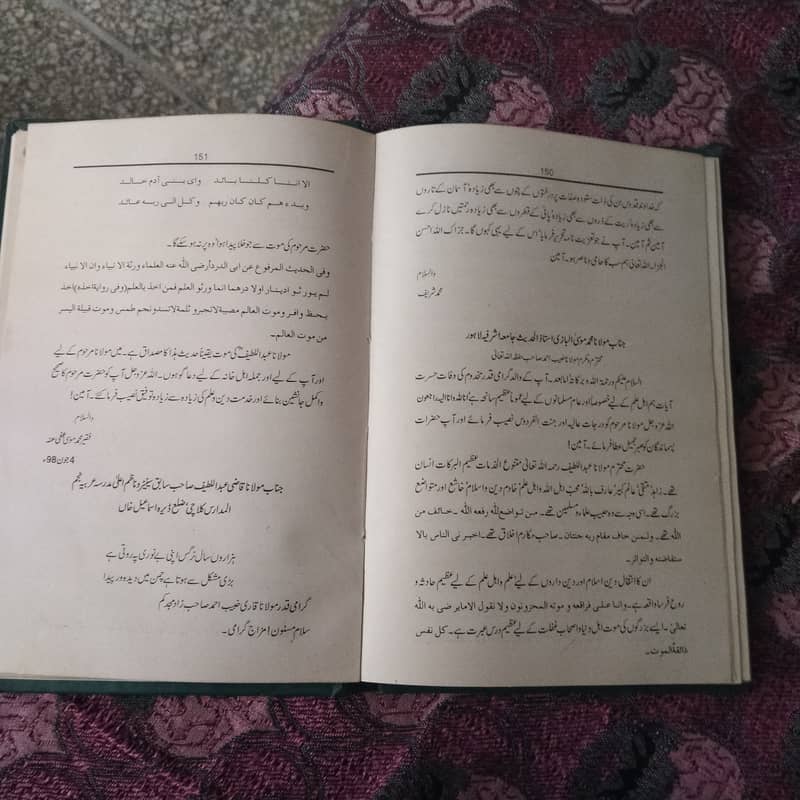 150
کی خداوند قدوس ان کی ذات ستودہ صفات پر درختوں کے پتوں سے بھی زیادہ' آسمان کے تاروں
سے بھی زیادہ' ریت کے ذروں سے بھی زیادہ' پانی کے قطروں سے بھی زیادہ رحمتیں نازل کرے
آمین ثم آمین۔ آپ نے جو تعزیت نامہ تحریر فرمایا' اس کے لیے یہی کہوں گا۔ جزاک اللہ احسن
الجزاء۔ اللہ تعالیٰ ہم سب کا حامی و ناصر ہو۔ آمین
والسلام
محمد شریف
جناب مولانا محمد موسیٰ البازی استاذ الحدیث جامعہ اشرفیہ لاہور
محترم مکرم مولانا خبیب احمد صاحب حفظہ اللہ تعالیٰ
السلام علیکم ورحمۃ اللہ وبرکاتہ امابعد۔ آپ کے والد گرامی قدر مخدوم کی وفات حسرت
آیات ہم اہل علم کے لیے خصوصاً اور عام مسلمانوں کے لیے عموماً عظیم سانحہ ہے' انا للہ وانا الیہ راجعون
اللہ عزوجل مولانا مرحوم کو درجات عالیہ اور جنت الفردوس نصیب فرمائے اور آپ حضرات
پسماندگان کو صبر جمیل عطا فرمائے۔ آمین!
حضرت محترم مولانا عبداللطیف رحمہ اللہ تعالیٰ متنوع الخدمات عظیم البرکات انسان
تھے۔ زاہد' متقی' عالم کبیر' عارف باللہ' محب اہل اللہ واہل علم' خادم دین واسلام' خاشع اور متواضع
بزرگ تھے۔ اسی وجہ سے وہ حبیب علماء ومسلمین تھے۔ من تواضع للہ رفعہ اللہ۔ خائف من
اللہ تھے۔ ولمن خاف مقام ربہ جنتان۔ صاحب مکارم اخلاق تھے۔ اخبرنی الناس بالا
ستفاضتہ والتواتر۔
ان کا انتقال دین اسلام اور دین داروں کے لیے' علم واہل علم کے لیے عظیم حادثہ و
روع فرسا واقعہ ہے۔ وانا علی فراقہ و موتہ المحزونون ولا نقول الامایرضی بہ اللہ
تعالیٰ۔ ایسے بزرگوں کی موت اہل دنیا واصحاب غفلت کے لیے عظیم درس عبرت ہے۔ کل نفس
ذائقۃ الموت۔
151
الا انـنـا کلنـا بـائد وای بـنـی آدم خـالـد
وبدءھم کان کان ربھم وکـل الـی ربـہ عـائد
حضرت مرحوم کی موت سے جو خلا پیدا ہوا وہ پر نہ ہوسکے گا۔
وفی الحدیث المرفوع عن ابی الدرداء رضی اللہ عنہ العلماء ورثۃ الانبیاء وان الانبیاء
لم یورثو ادینار اولا درھما انما ورثو العلم فمن اخذ بالعلم (وفی روایۃ اخذہ) اخذ
بحظ وافر وموت العالم مصیبۃ لاتجبر و ثلمۃ لاتسد و نجم طمس وموت قبیلۃ الیسر
من موت العالم۔
مولانا عبداللطیفؒ کی موت یقیناً حدیث ہذا کا مصداق ہے۔ میں مولانا مرحوم کے لیے
اور آپ کے لیے اور جملہ اہل خانہ کے لیے دعا گو ہوں۔ اللہ عزوجل آپ کو حضرت مرحوم کا صحیح
واکمل جانشین بنائے اور خدمت دین وعلم کی زیادہ سے زیادہ توفیق نصیب فرمائے۔ آمین!
والسلام
فقیر محمد موسیٰ عفی عنہ
4 جون 98ء
جناب مولانا قاضی عبداللطیف صاحب سابق سینیٹر و ناظم اعلیٰ مدرسہ عربیہ نجم
المدارس کلاچی' ضلع ڈیرہ اسماعیل خاں
ہزاروں سال نرگس اپنی بے نوری پہ روتی ہے
بڑی مشکل سے ہوتا ہے چمن میں دیدہ ور پیدا
گرامی قدر مولانا قاری خبیب احمد صاحب زاد مجدکم
سلام مسنون! مزاج گرامی۔